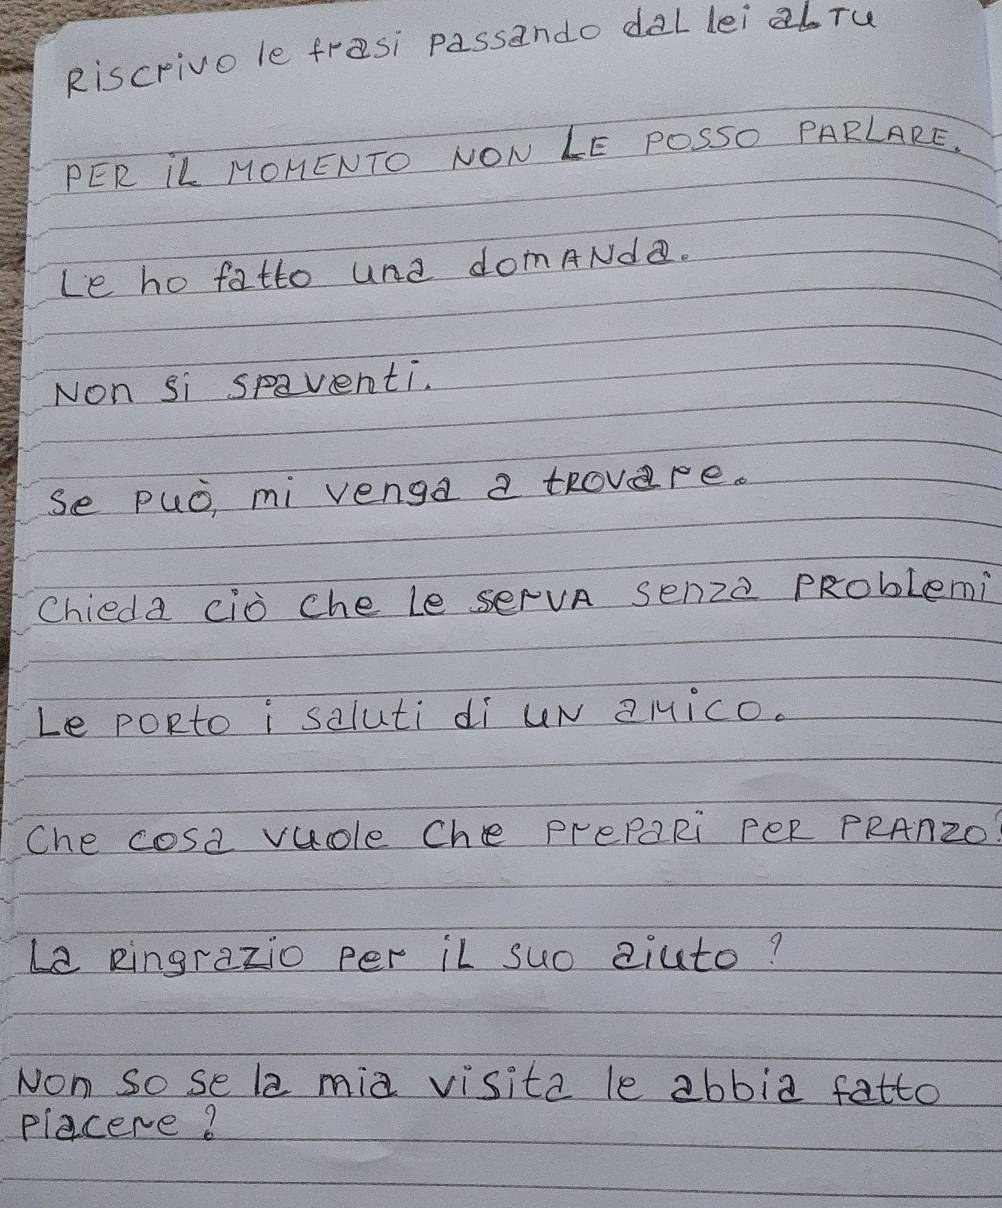 Riscrivo le frasi passando dal lei al tu
PER iL MOMENTO NON LE POSSO PARLARE.
Le ho fatto una domANda.
Non si spaventi.
Se può, mi venga a tRovare.
Chieda ciò che le servA senza PRoblemi
Le poRto i saluti di uN aMico.
Che cosa vuole che prepaRi peR PRAnzo?
La Ringrazio per iL suo aiuto?
Non so se la mia visita le abbia fatto
piacere?